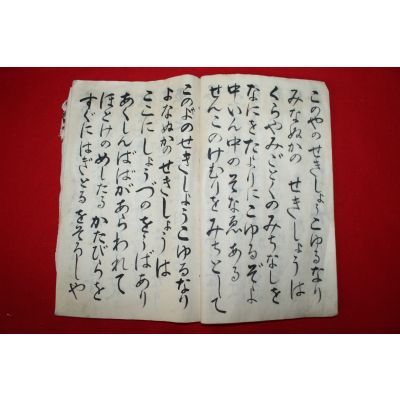 このやのせきしよこゆるなり
みなぬかの せきしょうは
くらやみごくのみちなしを
なにをたよりにこゆるぞよ
中いん中の そなゑ ある
せんこのけむりをみちとして
このよのせきしょうこゆるなり
よなぬかの せきしょうは
ここにしょうづのをうばあり
あくしんばばがあらわれて
ほとけのめしたる かたびらを
すぐにはぎとる をそろしや